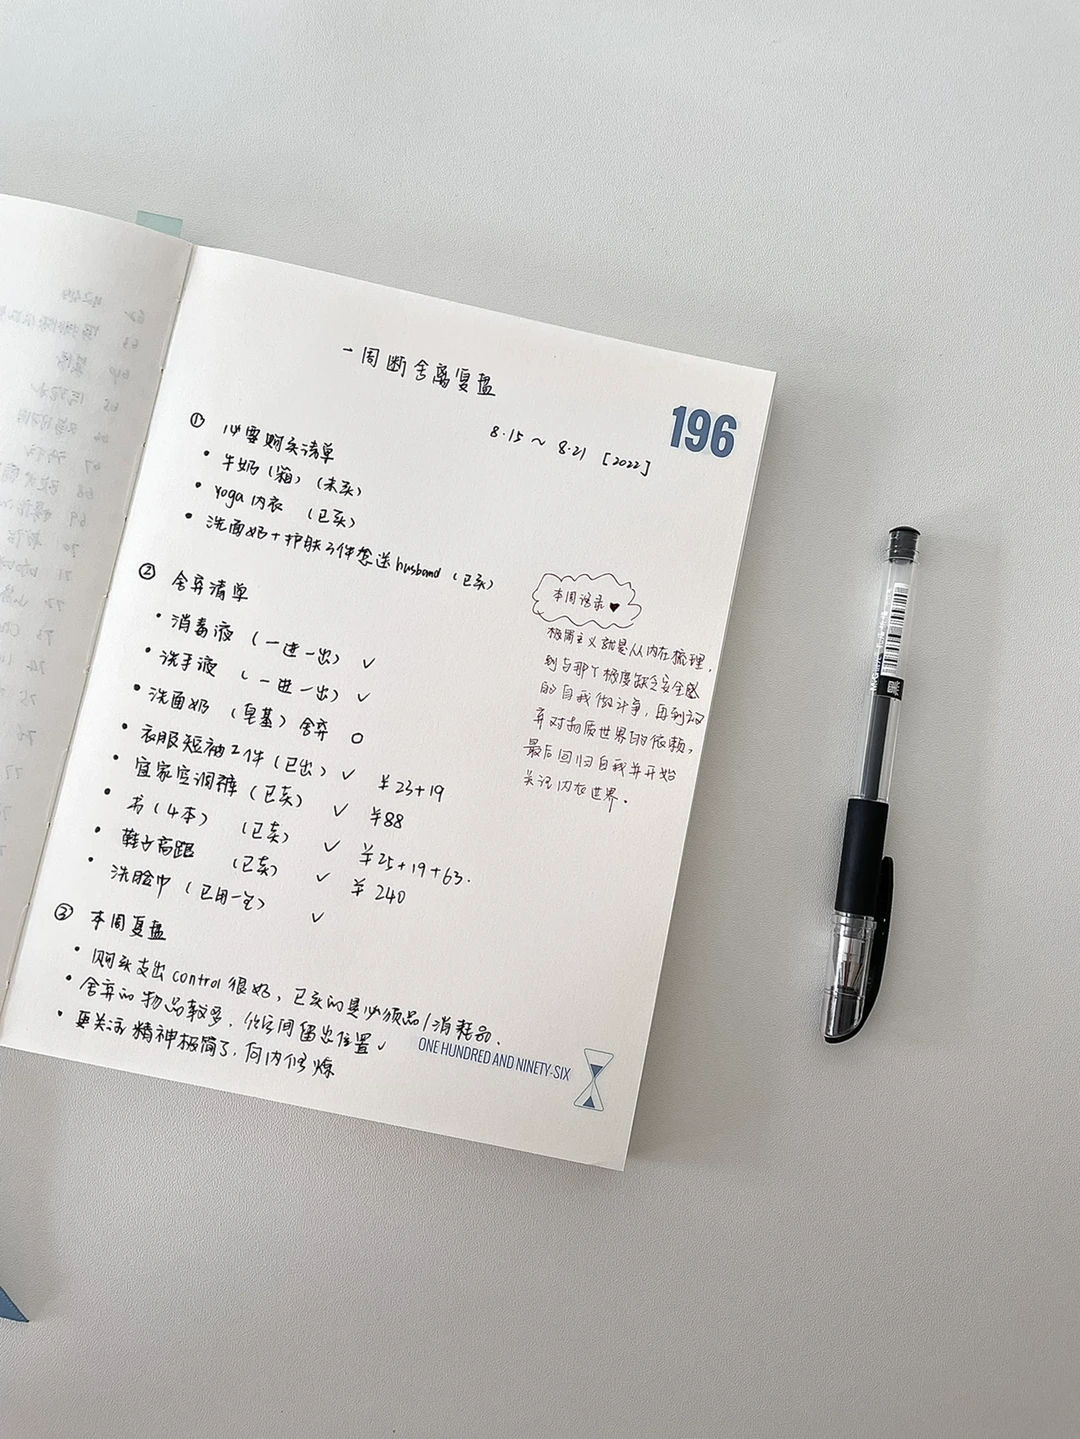 一周断舍离复盘
196
8.15 ~ 8.21 [2022]
① 必要购买清单
• 牛奶(箱)(未买)
• Yoga 内衣 (已买)
• 洗面奶+护肤3件套送husband (已买)
② 舍弃清单
• 消毒液 (一进一出) ✓
• 洗手液 (一进一出) ✓
• 洗面奶 (皂基) 舍弃 O
• 衣服短袖2件(已出) ✓ ¥23+19
• 宜家空调裤 (已卖) ✓ ¥88
• 书(4本) (已卖) ✓ ¥25+19+63.
• 鞋子高跟 (已卖) ✓ ¥240
• 洗脸巾 (已用一包) ✓
③ 本周复盘
• 购买支出control很好,已买的是必须品/消耗品.
• 舍弃的物品较多,给空间留出位置✓
• 更关注精神极简了,向内修炼
本周语录♥
极简主义就是从内在梳理,
到与那个极度缺乏安全感
的自我做斗争,再到放
弃对物质世界的依赖,
最后回归自我并开始
关注内在世界。
ONE HUNDRED AND NINETY-SIX